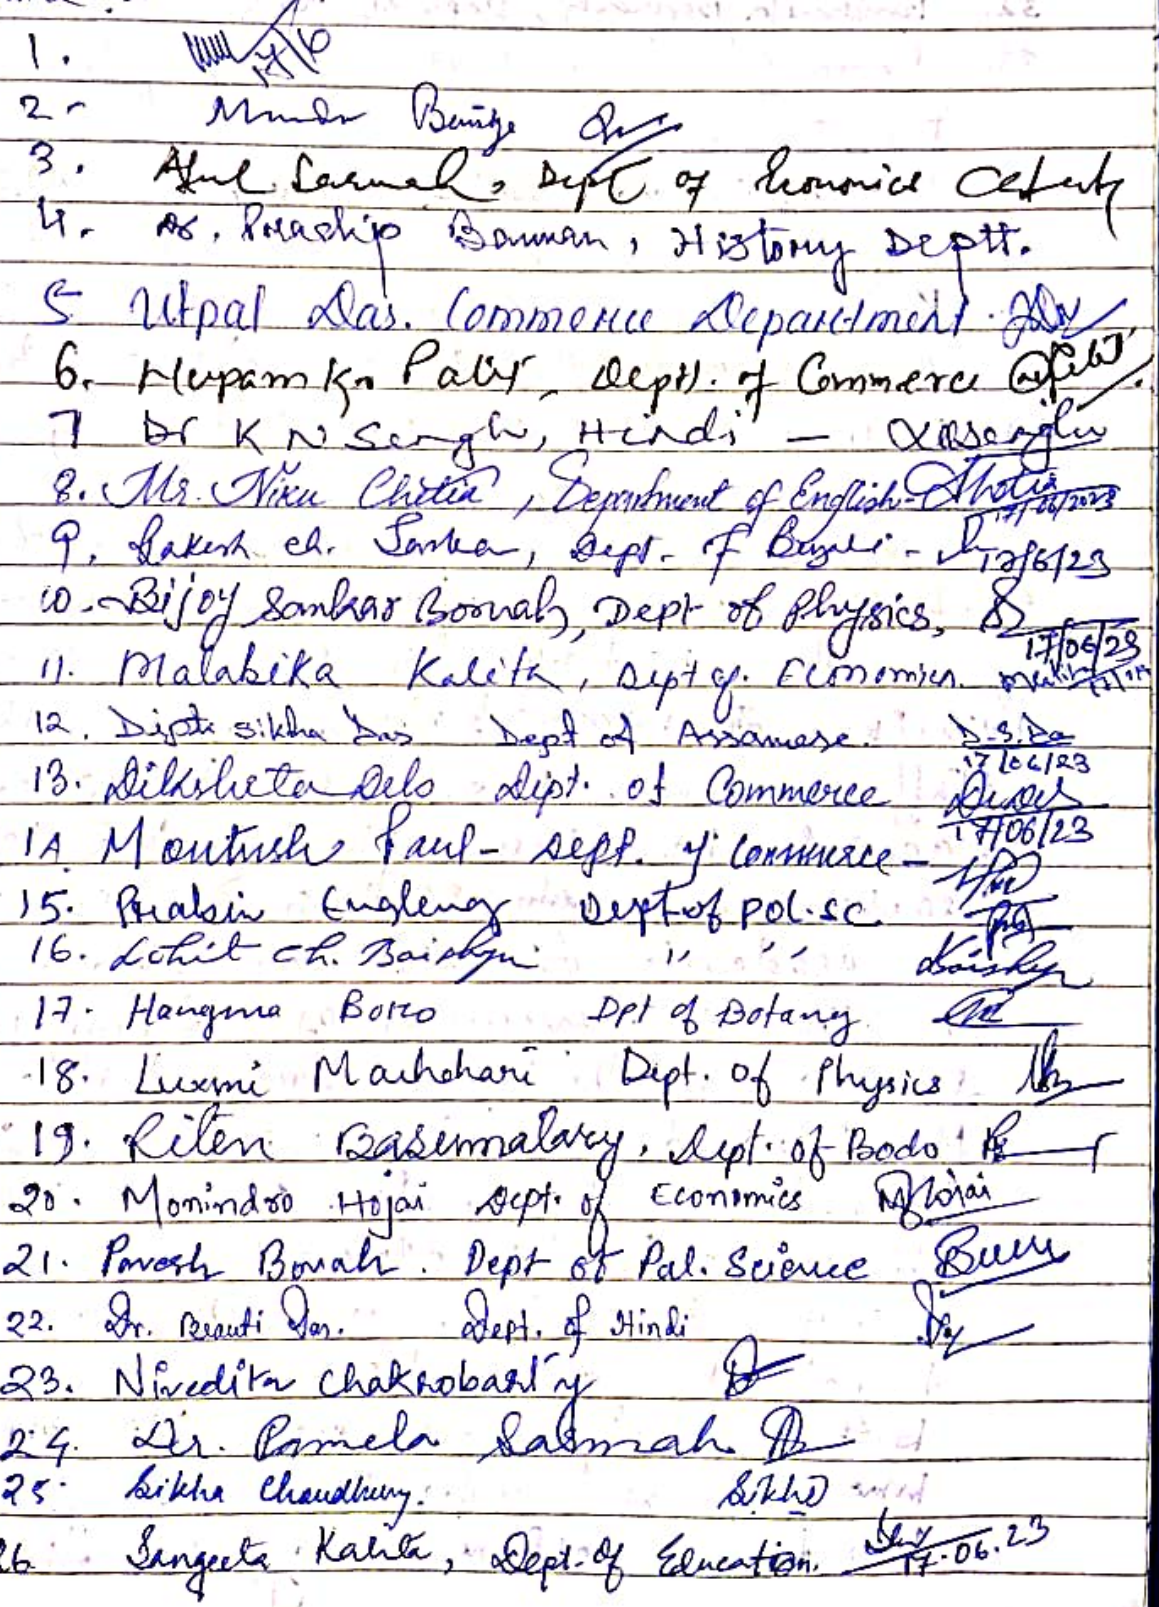 1. 17/6
2-
3. Atul Sarmah, Dept of Economics
4. Dr. Pradip Barman, History Deptt.
5 Utpal Das. Commerce Department.
6. Nupam Kr. Patir, Deptt. of Commerce
7 Dr K N Singh, Hindi - KNSingh
8. Mr. Niku Chetia, Department of English - Chetia 17/06/2023
9. Rakesh Ch. Sarkar, Dept. of - 17/6/23
10. Bijoy Sankar Boruah, Dept of Physics, 17/06/23
11. Malabika Kalita, Dept of. Economics.
12. Dipti Sikha Das Dept of Assamese. D.S.Da 17/06/23
13. Diksheta Deb Dept. of Commerce 17/06/23
14 Montush Paul - Dept. of Commerce -
15. Prabin Engleng Dept of Pol.Sc.
16. Lohit Ch. Baishya " "
17. Hangma Boro Dpt of Botany
18. Luxmi Machahari Dept. Of Physics
19. Riten Basumatary. Dept. of Bodo
20. Monindro Hojai Dept. of Economics MHojai
21. Paresh Borah. Dept of Pol. Science
22. Dr. Beauti Das. Dept. of Hindi
23. Nivedita Chakrobarty
24. Dr. Pamela Sarmah
25. Sikha Chaudhury. Sikha
26. Sangeeta Kalita, Dept. of Education. 17.06.23